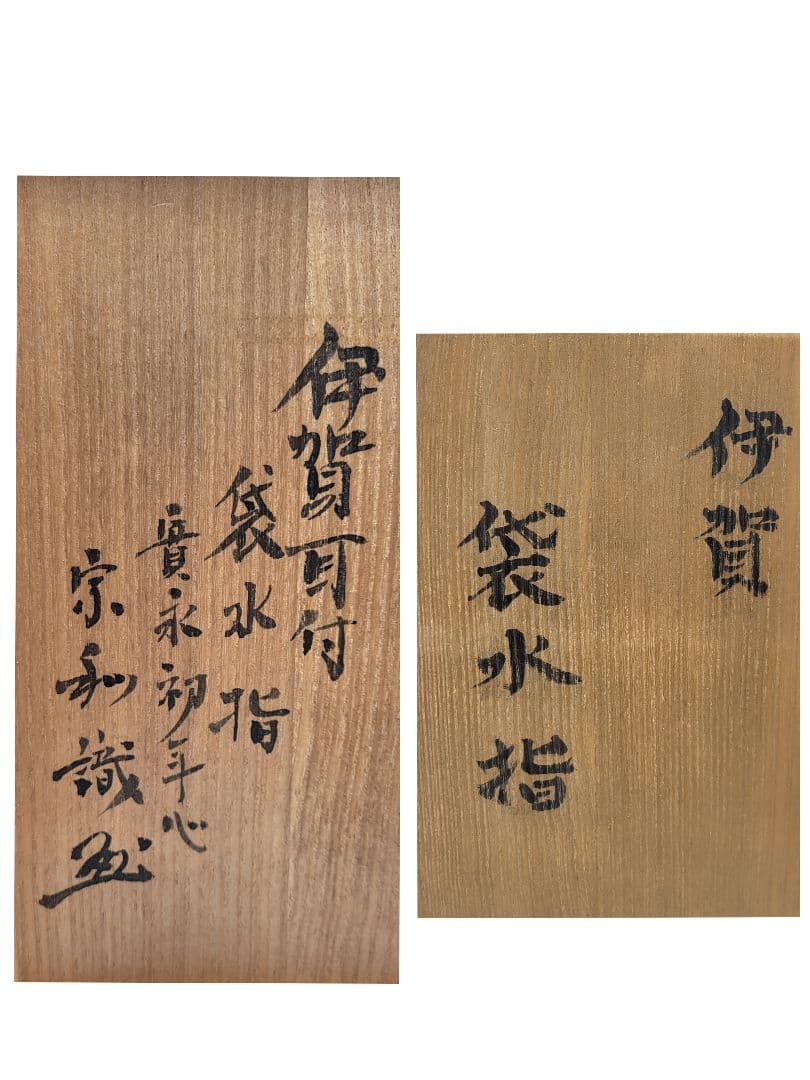 伊賀耳付
袋水指
永初年
宗和識
伊賀
袋水指